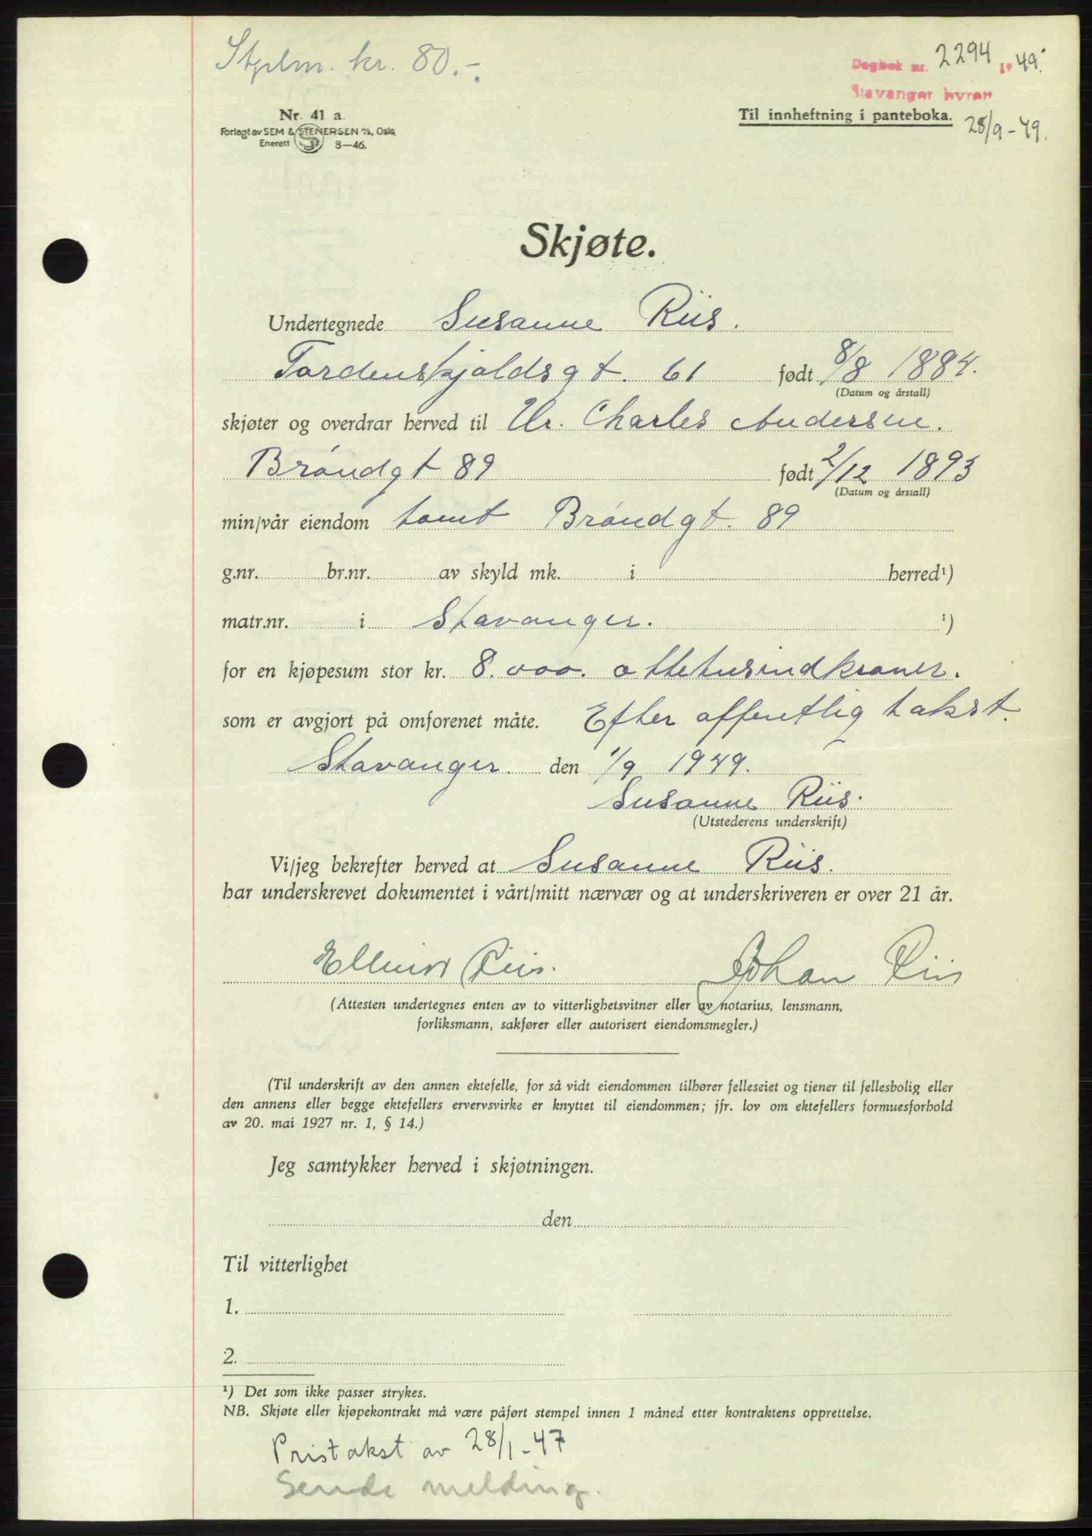 Stplm. kr. 80.-.
Dagbok nr. 2294 19 49.
Stavanger byrett
Nr. 41 a.
Forlagt av SEM & STENERSEN A/S, Oslo
Enerett 8—46.
Til innheftning i panteboka. 28/9-49.
Skjøte.
Undertegnede Susanne Riis.
Tordenskjoldsgt. 61 født 8/8 1884.
(Datum og årstall)
skjøter og overdrar herved til Hr. Charles Andersen.
Brøndgt 89 født 2/12 1893
(Datum og årstall)
min/vår eiendom tomt Brøndgt. 89
g.nr. br.nr. av skyld mk. i herred¹)
matr.nr. i Stavanger. ¹)
for en kjøpesum stor kr. 8.000. ottetusindkroner.
som er avgjort på omforenet måte. Efter offentlig takst.
Stavanger. den 1/9 1949.
Susanne Riis.
(Utstederens underskrift)
Vi/jeg bekrefter herved at Susanne Riis.
har underskrevet dokumentet i vårt/mitt nærvær og at underskriveren er over 21 år.
Riis. Johan Riis
(Attesten undertegnes enten av to vitterlighetsvitner eller av notarius, lensmann,
forliksmann, sakfører eller autorisert eiendomsmegler.)
(Til underskrift av den annen ektefelle, for så vidt eiendommen tilhører felleseiet og tjener til fellesbolig eller
den annens eller begge ektefellers ervervsvirke er knyttet til eiendommen; jfr. lov om ektefellers formuesforhold
av 20. mai 1927 nr. 1, § 14.)
Jeg samtykker herved i skjøtningen.
den
Til vitterlighet
1.
2.
¹) Det som ikke passer strykes.
NB. Skjøte eller kjøpekontrakt må være påført stempel innen 1 måned etter kontraktens opprettelse.
Pristakst av 28/1-47
Sende melding.